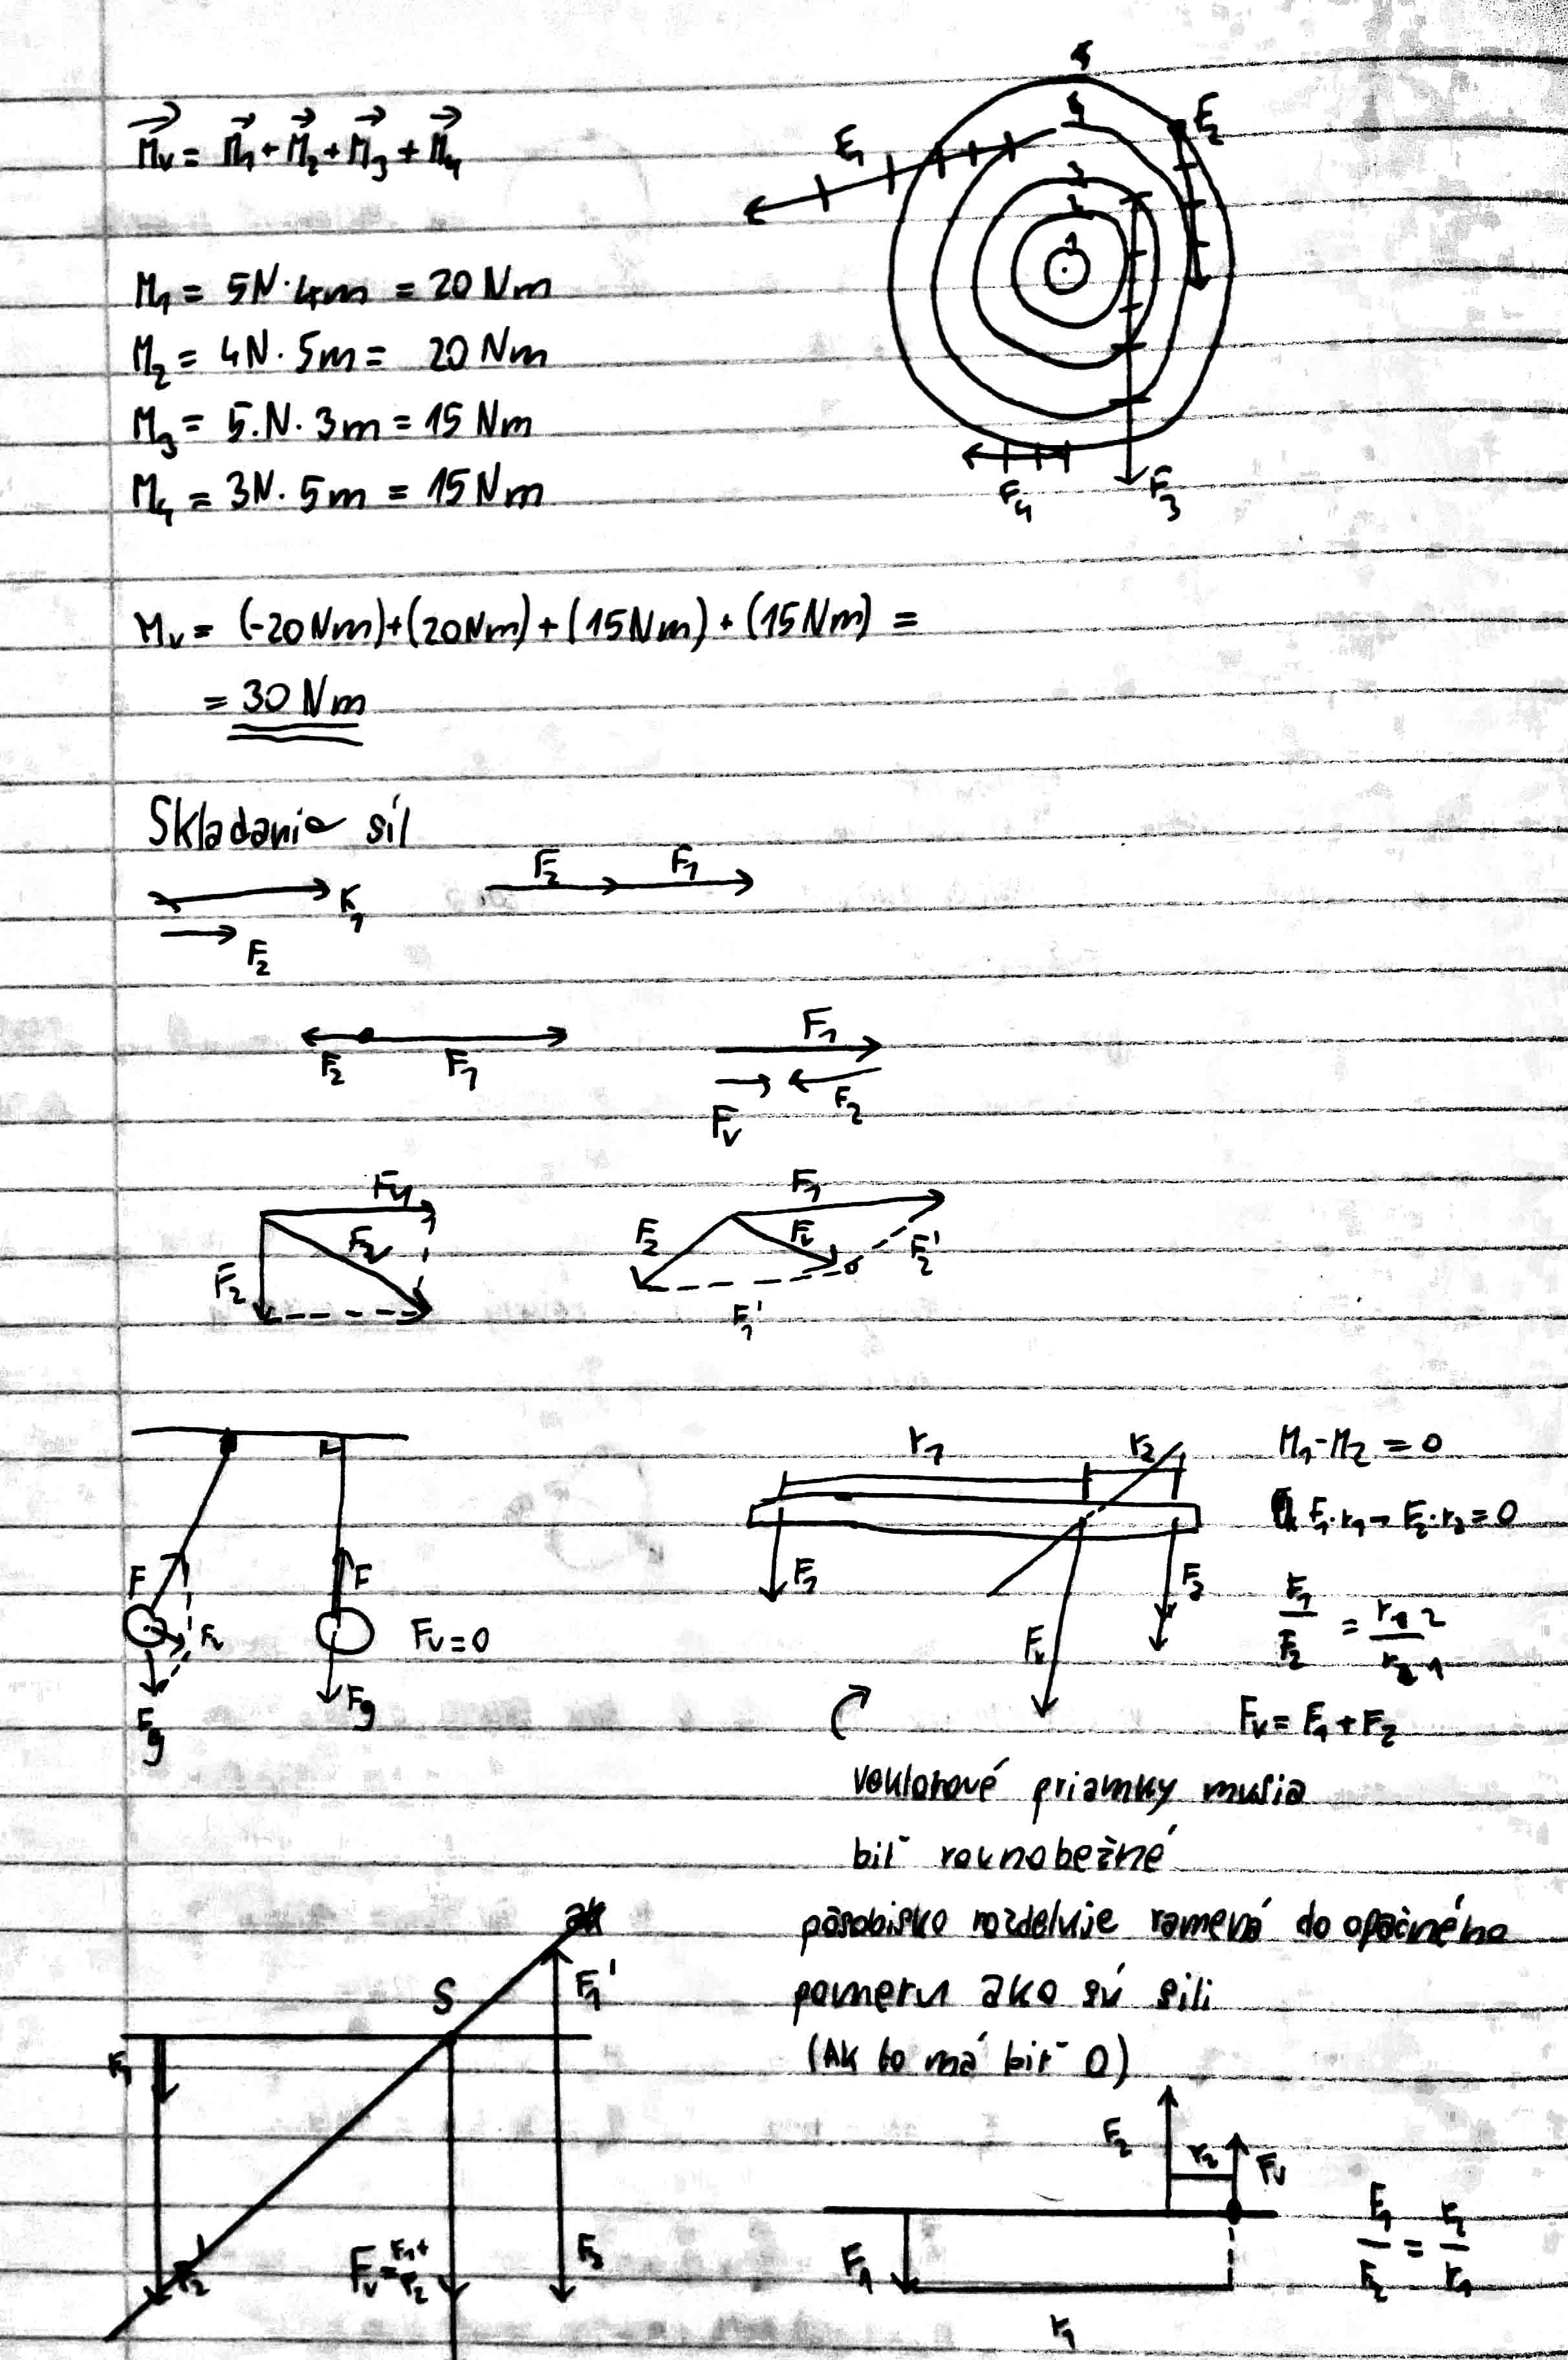 Mv = M1 + M2 + M3 + M4
5
4
3
2
1
F1
F2
F3
F4
M1 = 5N · 4m = 20 Nm
M2 = 4N · 5m = 20 Nm
M3 = 5.N · 3m = 15 Nm
M4 = 3N · 5m = 15 Nm
Mv = (-20Nm)+(20Nm)+(15Nm)+(15Nm) =
= 30 Nm
Skladanie síl
F1
F2
F2 F1
F2 F1
F1
Fv F2
F1
Fv
F2
F1
F2 Fv F2'
F1'
F Fv
Fg
F
Fv=0
Fg
r1 r2
F1 F2
Fv
M1-M2 = 0
F1·r1 - F2·r2=0
F1/F2 = r2/r1
Fv= F1+F2
vektorové priamky musia
biť rovnobežné
pôsobisko rozdeluje ramená do opačného
pomeru ako sú sili
(Ak to má biť 0)
S
F1'
F1
F2
Fv= F1+F2
F2
F2
r2 Fv
F1
r1
F1/F2 = r2/r1